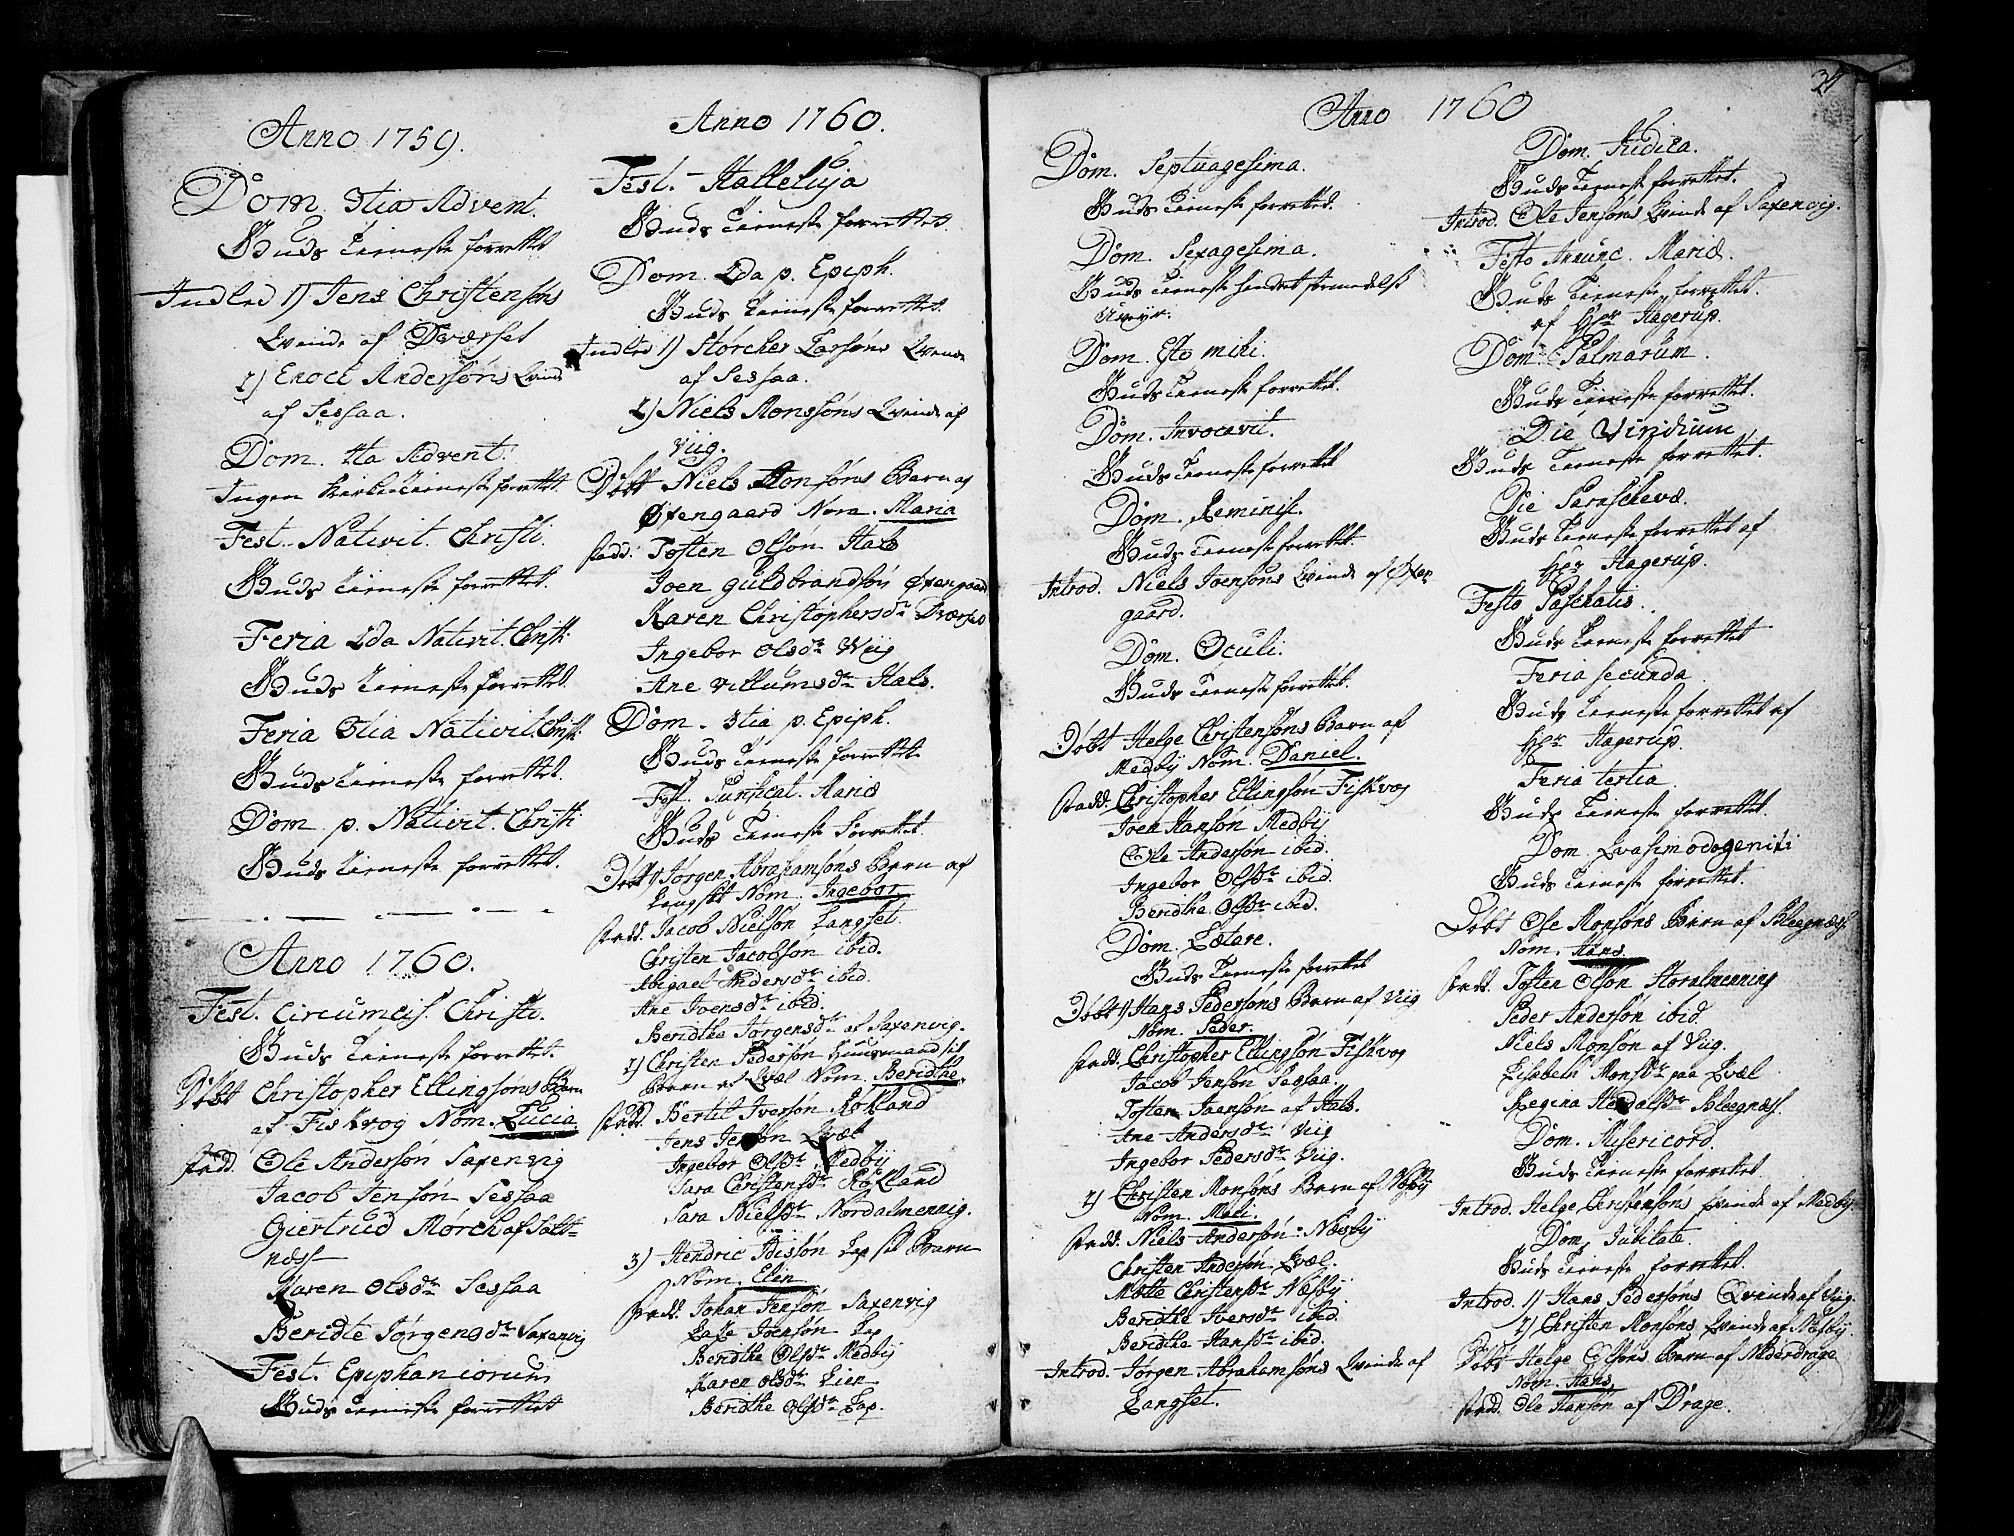 Anno 1759.
Dom. 3tia Advent.
Guds Tieneste forrettet
Indled 1) Jens Christensøns
Qvinde af Dværset
2) Enoch Andersøns Qvinde
af Sessaa.
Dom. 4ta Advent.
Ingen Kirketieneste forrettet.
Fest. Nativit. Christi.
Guds Tieneste forrettet.
Feria 2da Nativit. Christi
Guds Tieneste forrettet.
Feria 3tia Nativit. Christi.
Guds Tieneste forrettet.
Dom. p. Nativit. Christi
Guds Tieneste forrettet.
Anno 1760.
Fest. Circumcis. Christi.
Guds Tieneste forrettet.
Døbt Christopher Ellingsøns Barn
af Fiskvog Nom. Lucia.
Fadd. Ole Andersøn Saxenvig
Jacob Jensøn Sessaa
Giertrud Mørch af Salt-
næss
Karen Olsdr. Sessaa
Beridte Jørgensdr. Saxenvig
Fest. Epiphaniorum
Guds Tieneste forrettet
Anno 1760.
Fest. Halleluja
Guds Tieneste forrettet.
Dom. 2da p. Epiph.
Guds Tieneste forrettet.
Indled 1) Størcher Larsøns Qvinde
af Sessaa.
2) Niels Monsøns Qvinde af
Viig.
Døbt Niels Monsøns Barn af
Øxengaard Nom. Maria
Fadd. Tosten Olsøn Hals
Joen Guldbrandsøn Øxengaard
Karen Christophersdr. Dværset
Ingebor Olsdr. Wiig
Ane Villumsdr. Hals.
Dom. 3tia p. Epiph.
Guds Tieneste forrettet
Fest. Purificat. Mariæ
Guds Tieneste forrettet.
Døbt 1) Jørgen Abrahamsøns Barn af
Langset Nom. Ingebor
Fadd. Jacob Nielsøn Langset.
Christen Jacobsøn ibid.
Abigael Andersdr. ibid.
Ane Joensdr. ibid.
Beridthe Jørgensdr. af Saxenvig.
2) Christen Pedersøn Huusmand sit
Barn af Qvæl Nom. Beridthe.
Fadd. Bertil Iversøn Rotland
Jens Jensøn Qvæl
Ingebor Olsdr. Medbÿ
Sara Christensdr. Rotland
Sara Nielsdr. Nordalmennig.
3) Hendric Nilsøn Lap sit Barn
Nom. Elen
Fadd. Johan Jensøn Saxenvig
Lasse Joensøn Lap
Beridthe Olsdr. Medbÿ
Karen Olsdr. Lien
Beridthe Olsdr. Lap.
Anno 1760
Dom. Septuagesima.
Guds Tieneste forrettet.
Dom. Sexagesima.
Guds Tieneste hindret formedelst
Uveyr.
Dom. Esto mihi.
Guds Tieneste forrettet.
Dom. Invocavit.
Guds Tieneste forrettet
Dom. Reminisc.
Guds Tieneste forrettet.
Introd. Niels Joensøns Qvinde af Øxen
gaard.
Dom. Oculi.
Guds Tieneste forrettet.
Døbt Helge Christensøns Barn af
Medbÿ Nom. Daniel.
Fadd. Christopher Ellingsøn Fiskvog
Joen Hansøn Medbÿ
Ole Andersøn ibid.
Ingebor Olsdr. ibid.
Beridthe Olsdr. ibid.
Dom. Lætare.
Guds Tieneste forrettet
Døbt 1) Hans Pedersøns Barn af Viig
Nom. Peder.
Fadd. Christopher Ellingsøn Fiskvog
Jacob Jensøn Sessaa.
Tosten Joensøn af Hals.
Ane Andersdr. Viig
Ingebor Pedersdr. Viig.
2) Christen Monsøns Barn af Næsbÿ
Nom. Mari.
Fadd. Niels Andersøn Næsbÿ
Christen Andersøn Qvæl.
Motte Christensdr. Næsbÿ
Beridthe Iversdr. ibid.
Beridthe Hansdr. ibid.
Introd. Jørgen Abrahamsøns Qvinde af
Langset.
34
Dom. Judica.
Guds Tieneste forrettet.
Introd. Ole Jensøns Qvinde af Saxenvig.
Festo Annunc. Mariæ.
Guds Tieneste forrettet.
af Hr. Hagerup.
Dom. Palmarum.
Guds Tieneste forrettet.
Die Viridium
Guds Tieneste forrettet.
Die Parascheve.
Guds Tieneste forrettet af
Hr. Hagerup.
Festo Paschatis.
Guds Tieneste forrettet
Feria secunda
Guds Tieneste forrettet af
Hr. Hagerup.
Feria tertia
Guds Tieneste forrettet.
Dom. Qvasimodogeniti
Guds Tieneste forrettet.
Døbt Ole Monsøns Barn af Blegnæss.
Nom. Hans
Fadd. Tosten Olsøn Storalmenning
Peder Andersøn ibid
Niels Monsøn af Viig.
Elisabeth Monsdr. paa Qvæl
Regina Blegnæss.
Dom. Misericord.
Guds Tieneste forrettet
Introd. Helge Christensøns Qvinde af Medbÿ
Dom. Jubilate.
Guds Tieneste forrettet.
Introd. 1) Hans Pedersøns Qvinde af Viig.
2) Christen Monsøns Qvinde af Næsbÿ.
Døbt Helge Olsøns Barn af Nederdrage
Nom. Hans
Fadd. Ole Hansøn af Drage.